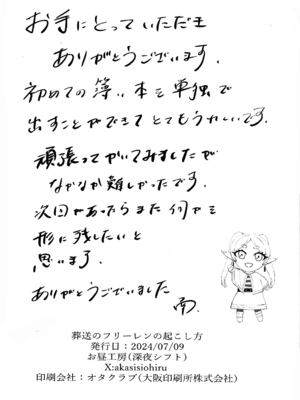 お手にとっていただき
ありがとうございます。
初めての薄い本を単独で
出すことができてとてもうれしいです。
頑張ってかいてみましたが
なかなか難しかったです。
次回があったらまた何かを
形に残したいと
思います。
ありがとうございました
葬送のフリーレンの起こし方
発行日：2024/07/09
お昼工房(深夜シフト)
X:akasisiohiru
印刷会社：オタクラブ(大阪印刷所株式会社)